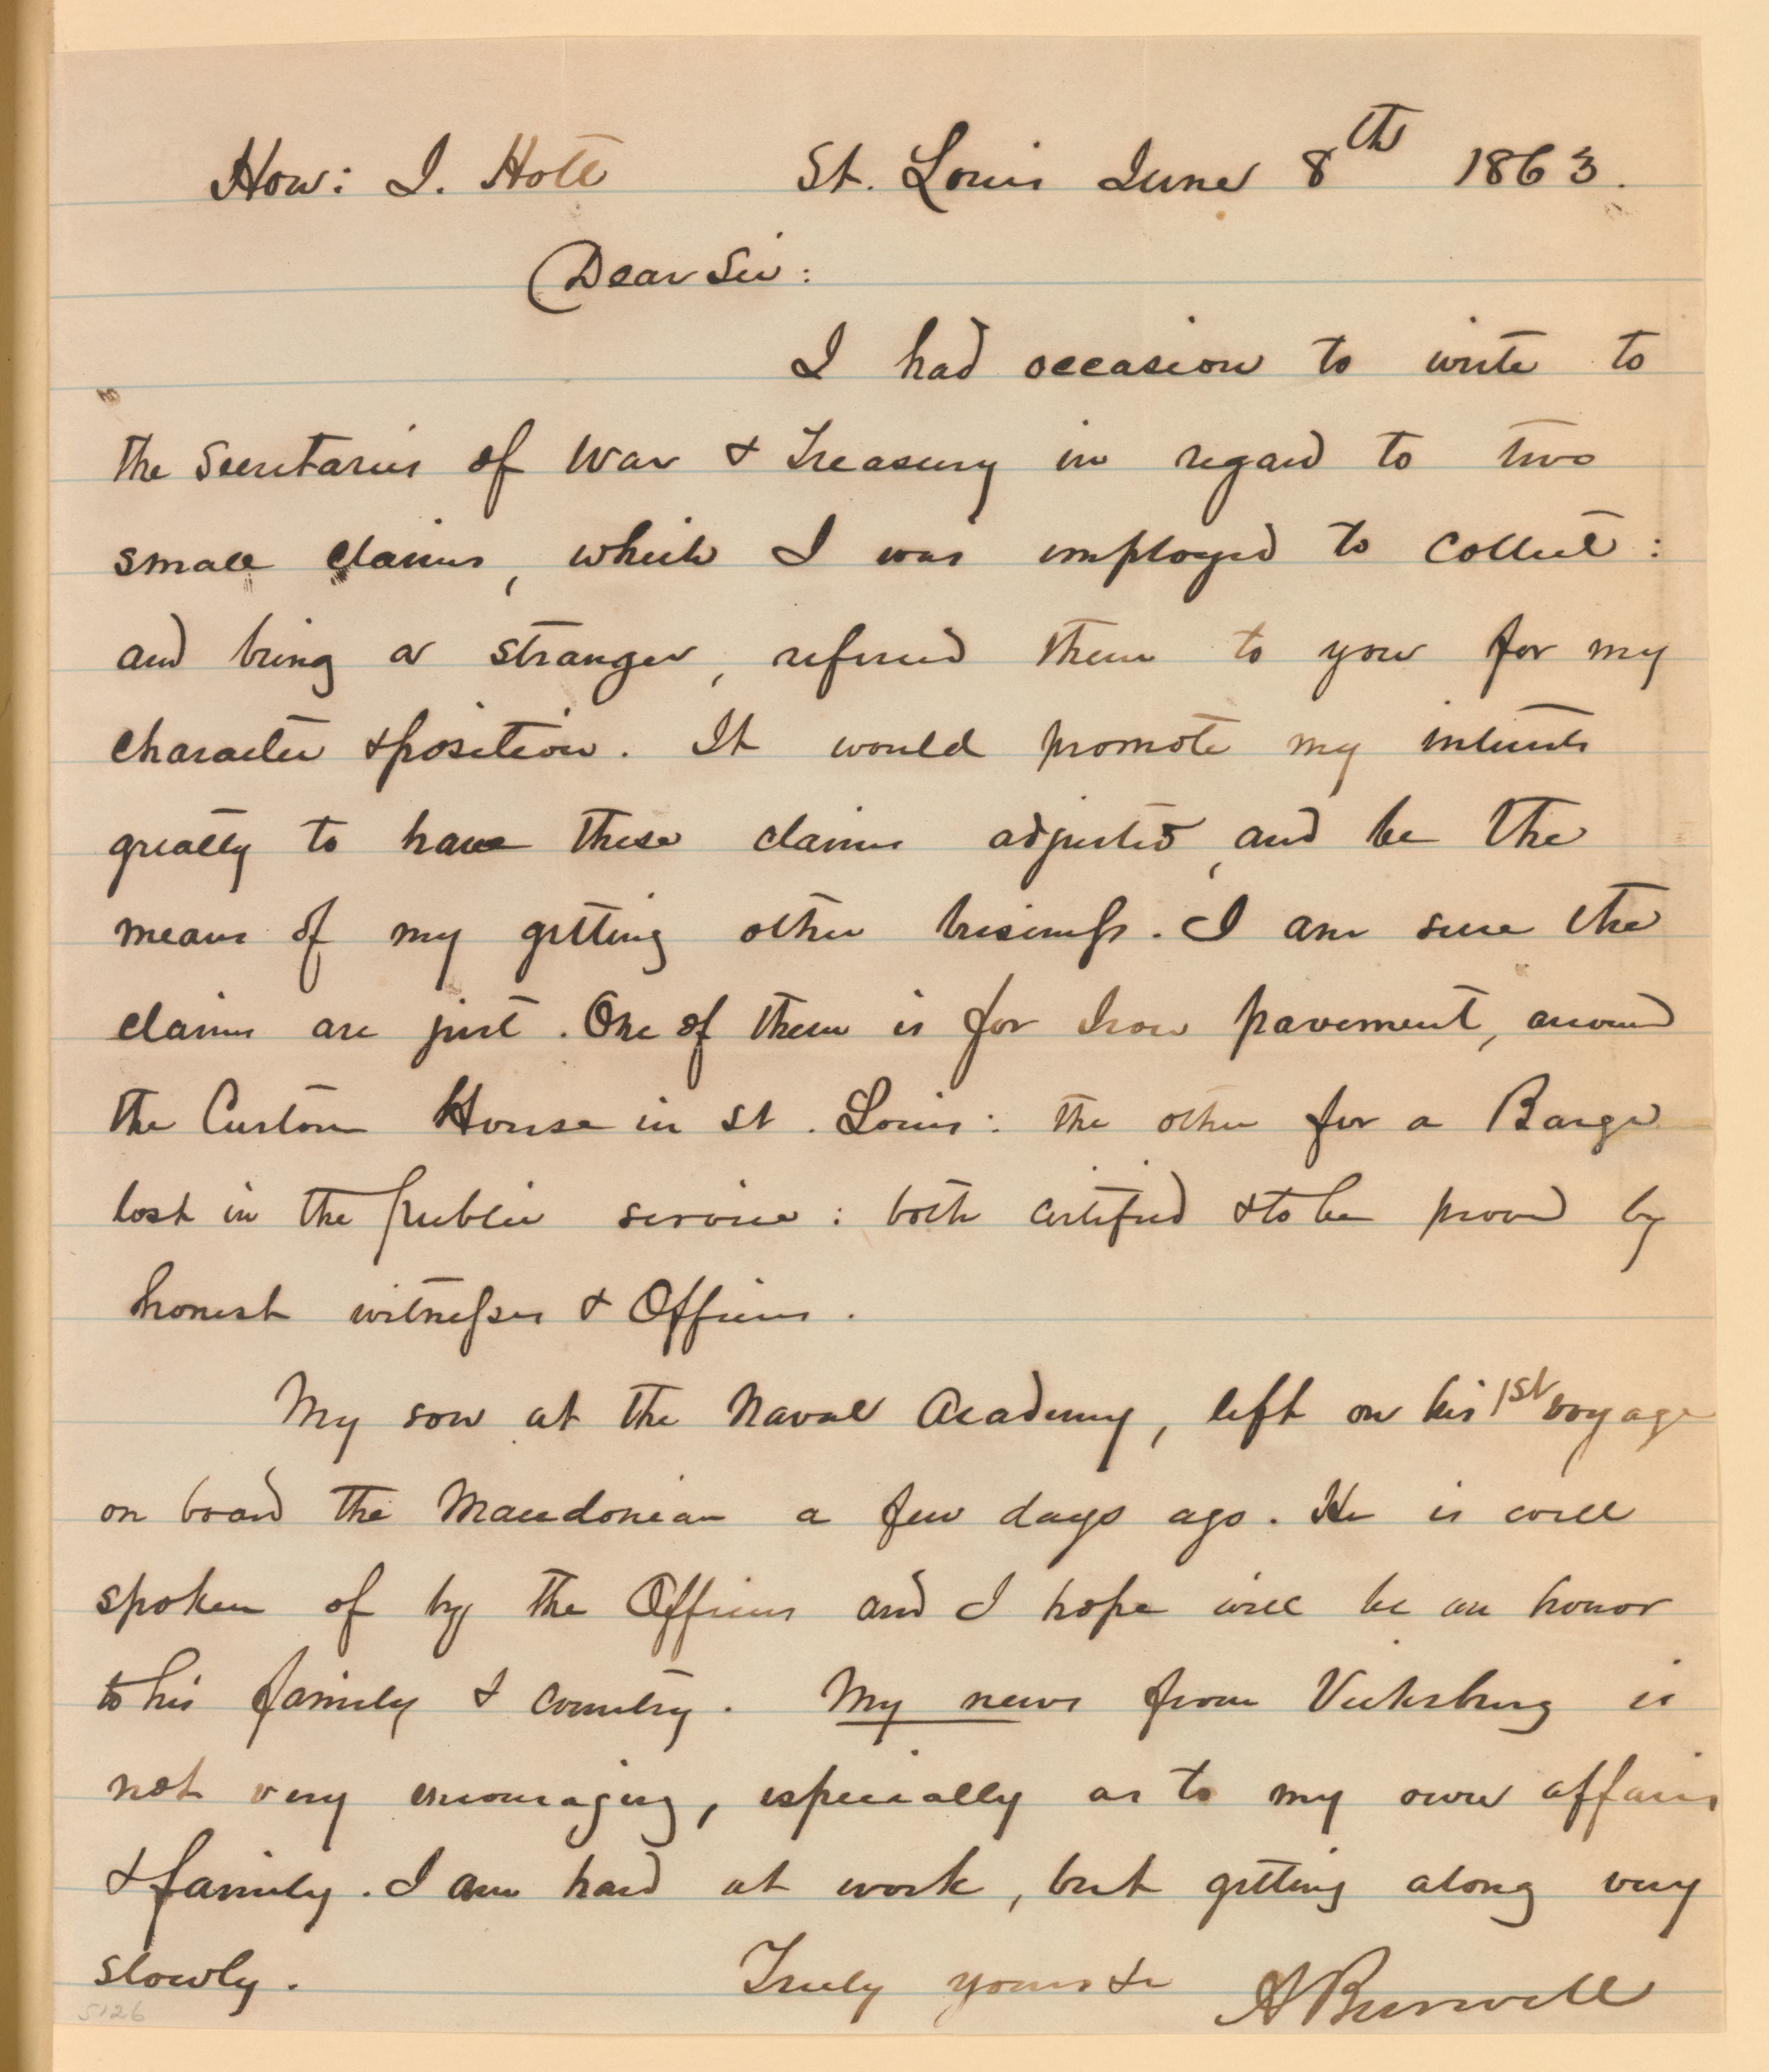 Hon: J. Holt St. Louis June 8th 1863.
Dear Sir:
I had occasion to write to
the Secretaries of War & Treasury in regard to two
small claims, which I was employed to collect:
and being a stranger, referred them to you for my
character & position. It would promote my interests
greatly to have these claims adjusted, and be the
means of my getting other business. I am sure the
claims are just. One of them is for Iron pavement, around
the Custom House in St. Louis: the other for a Barge
lost in the public service: both certified & to be proved by
honest witnesses & Officers.
My son at the Naval Academy, left on his 1st voyage
on board the Macedonian a few days ago. He is well
spoken of by the Officers and I hope will be an honor
to his family & country. My news from Vicksburg is
not very encouraging, especially as to my own affairs
& family. I am hard at work, but getting along very
slowly. Truly yours &c A Burwell
5126